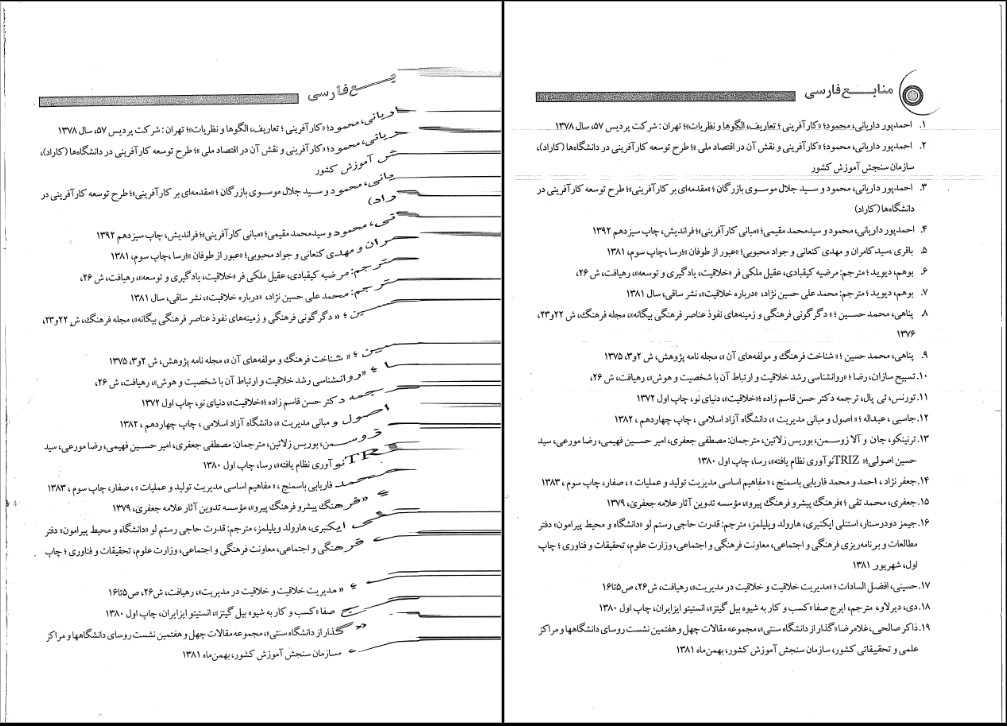 منابع فارسی
۱. احمدپور داریانی، محمود؛ «کارآفرینی ؛ تعاریف، الگوها و نظریات»؛ تهران : شرکت پردیس ۵۷، سال ۱۳۷۸
۲. احمدپور داریانی، محمود؛ «کارآفرینی و نقش آن در اقتصاد ملی »؛ طرح توسعه کارآفرینی در دانشگاه‌ها (کاراد)،
سازمان سنجش آموزش کشور
۳. احمدپور داریانی، محمود و سید جلال موسوی بازرگان ؛ «مقدمه‌ای بر کارآفرینی»؛ طرح توسعه کارآفرینی در
دانشگاه‌ها (کاراد)
۴. احمدپور داریانی، محمود و سیدمحمد مقیمی؛ «مبانی کارآفرینی»؛ فراندیش، چاپ سیزدهم ۱۳۹۲
۵. باقری ،سید کامران و مهدی کنعانی و جواد محبوبی؛ «عبور از طوفان »؛رسا ،چاپ سوم، ۱۳۸۱
۶. بوهم، دیوید ؛ مترجم: مرضیه کیقبادی، عقیل ملکی فر «خلاقیت، یادگیری و توسعه»، رهیافت، ش ۲۶،
۷. بوهم، دیوید ؛ مترجم: محمد علی حسین نژاد، «درباره خلاقیت»، نشر ساقی، سال ۱۳۸۱
۸. پناهی، محمد حسین ؛ « دگرگونی فرهنگی و زمینه‌های نفوذ عناصر فرهنگی بیگانه»، مجله فرهنگ، ش ۲۲و۲۳،
۱۳۷۶
۹. پناهی، محمد حسین ؛ « شناخت فرهنگ و مولفه‌های آن »، مجله نامه پژوهش، ش ۲و۳، ۱۳۷۵
۱۰. تسبیح سازان، رضا ؛ «روانشناسی رشد خلاقیت و ارتباط آن با شخصیت و هوش»، رهیافت، ش ۲۶،
۱۱. تورنس، ئی پال، ترجمه دکتر حسن قاسم زاده ؛«خلاقیت»، دنیای نو، چاپ اول ۱۳۷۲
۱۲. جاسبی، عبداله ؛ « اصول و مبانی مدیریت »، دانشگاه آزاد اسلامی ، چاپ چهاردهم ، ۱۳۸۲
۱۳. ترنینکو، جان و آلا زوسمن، بوریس زلاتین، مترجمان: مصطفی جعفری، امیر حسین فهیمی، رضا مورعی، سید
حسین اصولی؛« TRIZ نوآوری نظام یافته»، رسا، چاپ اول ۱۳۸۰
۱۴. جعفر نژاد ، احمد و محمد فاریابی باسمنج ، « مفاهیم اساسی مدیریت تولید و عملیات » ، صفار، چاپ سوم ، ۱۳۸۳
۱۵. جعفری، محمد تقی ؛ «فرهنگ پیشرو فرهنگ پیرو»، مؤسسه تدوین آثار علامه جعفری، ۱۳۷۹
۱۶. جیمز دودرستار، استنلی ایکنبری، هارولد ویلیلمز، مترجم: قدرت حاجی رستم لو «دانشگاه و محیط پیرامون» دفتر
مطالعات و برنامه‌ریزی فرهنگی و اجتماعی، معاونت فرهنگی و اجتماعی، وزارت علوم، تحقیقات و فناوری ؛ چاپ
اول، شهریور ۱۳۸۱
۱۷. حسینی، افضل السادات ؛ «مدیریت خلاقیت و خلاقیت در مدیریت»، رهیافت، ش۲۶، ص۵تا۱۶
۱۸. دی، دیرلاو، مترجم، ایرج صفا «کسب و کار به شیوه بیل گیتز»، انستیتو ایزایران، چاپ اول ۱۳۸۰
۱۹. ذاکر صالحی، غلامرضا «گذار از دانشگاه سنتی»، مجموعه مقالات چهل و هفتمین نشست روسای دانشگاهها و مراکز
علمی و تحقیقاتی کشور، سازمان سنجش آموزش کشور، بهمن‌ماه ۱۳۸۱
فارسی
محمود؛ «کارآفرینی ؛ تعاریف، الگوها و نظریات»؛ تهران : شرکت پردیس ۵۷، سال ۱۳۷۸
محمود؛ «کارآفرینی و نقش آن در اقتصاد ملی »؛ طرح توسعه کارآفرینی در دانشگاه‌ها (کاراد)،
آموزش کشور
محمود و سید جلال موسوی بازرگان ؛ «مقدمه‌ای بر کارآفرینی»؛ طرح توسعه کارآفرینی در
محمود و سیدمحمد مقیمی؛ «مبانی کارآفرینی»؛ فراندیش، چاپ سیزدهم ۱۳۹۲
و مهدی کنعانی و جواد محبوبی؛ «عبور از طوفان »؛رسا ،چاپ سوم، ۱۳۸۱
مترجم: مرضیه کیقبادی، عقیل ملکی فر «خلاقیت، یادگیری و توسعه»، رهیافت، ش ۲۶،
مترجم: محمد علی حسین نژاد، «درباره خلاقیت»، نشر ساقی، سال ۱۳۸۱
؛ « دگرگونی فرهنگی و زمینه‌های نفوذ عناصر فرهنگی بیگانه»، مجله فرهنگ، ش ۲۲و۲۳،
؛ « شناخت فرهنگ و مولفه‌های آن »، مجله نامه پژوهش، ش ۲و۳، ۱۳۷۵
؛ «روانشناسی رشد خلاقیت و ارتباط آن با شخصیت و هوش»، رهیافت، ش ۲۶،
دکتر حسن قاسم زاده ؛«خلاقیت»، دنیای نو، چاپ اول ۱۳۷۲
اصول و مبانی مدیریت »، دانشگاه آزاد اسلامی ، چاپ چهاردهم ، ۱۳۸۲
بوریس زلاتین، مترجمان: مصطفی جعفری، امیر حسین فهیمی، رضا مورعی، سید
نوآوری نظام یافته»، رسا، چاپ اول ۱۳۸۰
فاریابی باسمنج ، « مفاهیم اساسی مدیریت تولید و عملیات » ، صفار، چاپ سوم ، ۱۳۸۳
«فرهنگ پیشرو فرهنگ پیرو»، مؤسسه تدوین آثار علامه جعفری، ۱۳۷۹
ایکنبری، هارولد ویلیلمز، مترجم: قدرت حاجی رستم لو «دانشگاه و محیط پیرامون» دفتر
فرهنگی و اجتماعی، معاونت فرهنگی و اجتماعی، وزارت علوم، تحقیقات و فناوری ؛ چاپ
« مدیریت خلاقیت و خلاقیت در مدیریت»، رهیافت، ش۲۶، ص۵تا۱۶
صفا «کسب و کار به شیوه بیل گیتز»، انستیتو ایزایران، چاپ اول ۱۳۸۰
«گذار از دانشگاه سنتی»، مجموعه مقالات چهل و هفتمین نشست روسای دانشگاهها و مراکز
سازمان سنجش آموزش کشور، بهمن‌ماه ۱۳۸۱